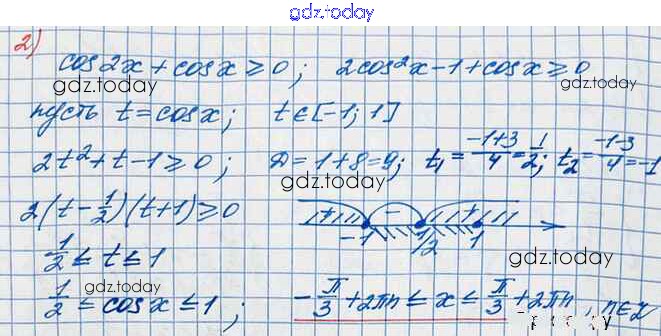 gdz.today
2)
cos2x + cosx ≥ 0; 2cos²x - 1 + cosx ≥ 0
gdz.today gdz.today
пусть t = cosx; t ∈ [-1; 1]
2t² + t - 1 ≥ 0; D = 1 + 8 = 9; t₁ = (-1+3)/4 = 1/2; t₂ = (-1-3)/4 = -1
gdz.today
2(t - 1/2)(t + 1) ≥ 0
+ - +
-1 1/2 1
1/2 ≤ t ≤ 1
gdz.today gdz.today
1/2 ≤ cosx ≤ 1; -π/3 + 2πn ≤ x ≤ π/3 + 2πn, n∈Z